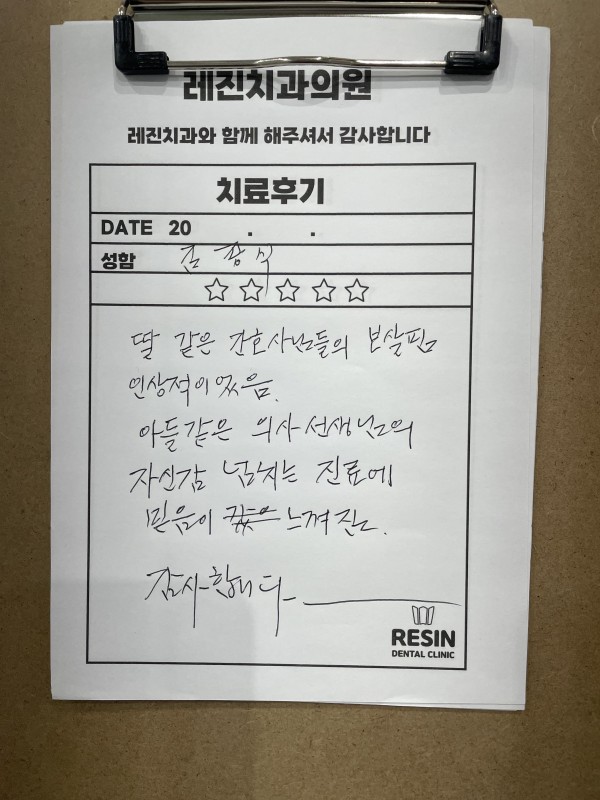 레진치과의원
레진치과와 함께 해주셔서 감사합니다
치료후기
DATE 20 . .
성함
☆☆☆☆☆
딸 같은 간호사님들의 보살핌
인상적이었음.
아들같은 의사선생님의
자신감 넘치는 진료에
믿음이 느껴진다.
감사합니다
RESIN
DENTAL CLINIC